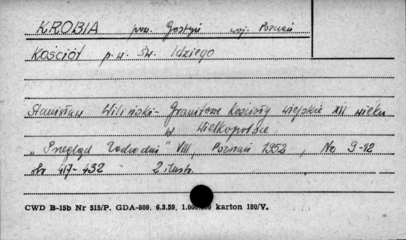 KROBIA pow. Gostyń woj. Poznań
Kościół p.w. Św. Idziego
Stanisław Wiliński - Granitowe kościoły wiejskie XII wieku
w Wielkopolsce
„Przegląd Zachodni" VIII, Poznań 1952, No 9-12
str 417-432 - 2 ilustr.
CWD B-15b Nr 515/P. GDA-809. 6.3.59. 1.000.000 karton 180/V.